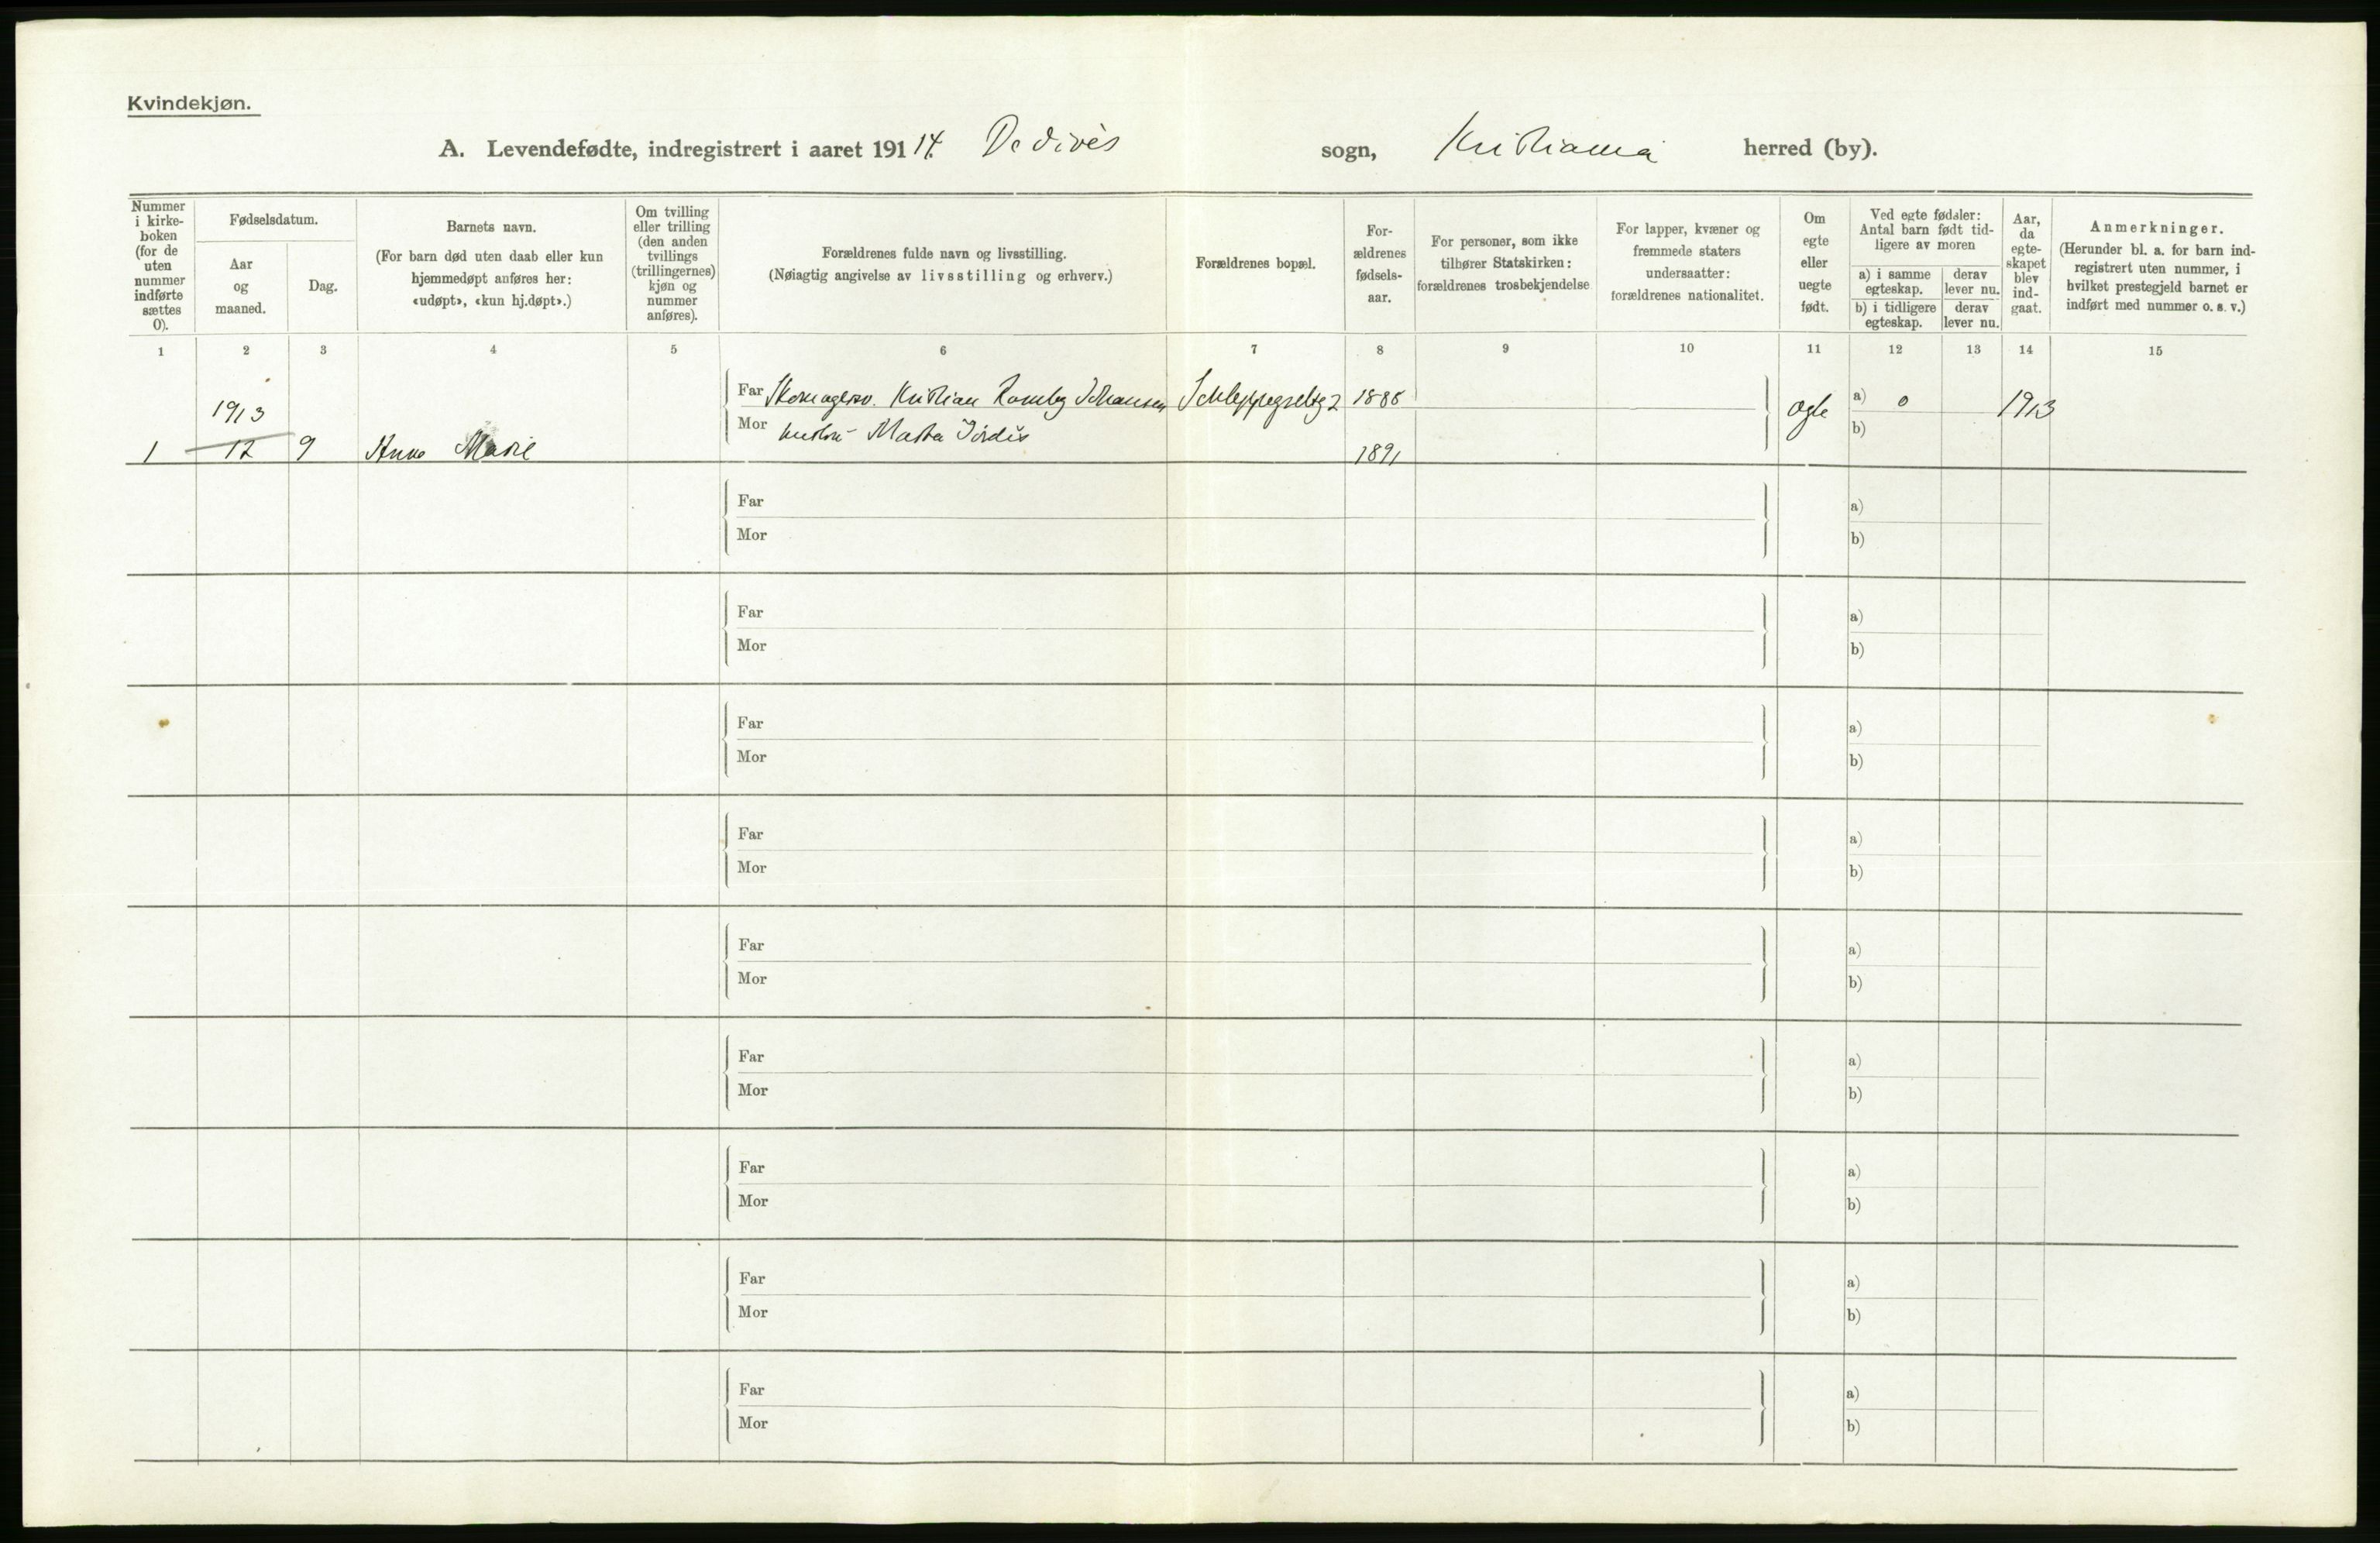 Kvindekjøn.
A. Levendefødte, indregistrert i aaret 1914. De døves sogn, Kristiania herred (by).
Nummer i kirke-boken (for de uten nummer indførte sættes 0).
Fødselsdatum.
Aar og maaned.
Dag.
Barnets navn.
(For barn død uten daab eller kun hjemmedøpt anføres her: «udøpt», «kun hj.døpt».)
Om tvilling eller trilling (den anden tvillings (trillingernes) kjøn og nummer anføres).
Forældrenes fulde navn og livsstilling.
(Nøiagtig angivelse av livsstilling og erhverv.)
Forældrenes bopæl.
For-ældrenes fødsels-aar.
For personer, som ikke tilhører Statskirken: forældrenes trosbekjendelse
For lapper, kvæner og fremmede staters undersaatter: forældrenes nationalitet.
Om egte eller uegte født.
Ved egte fødsler: Antal barn født tid-ligere av moren
a) i samme egteskap.
derav lever nu.
b) i tidligere egteskap.
derav lever nu.
Aar, da egte-skapet blev ind-gaat.
Anmerkninger.
(Herunder bl. a. for barn ind-registrert uten nummer, i hvilket prestegjeld barnet er indført med nummer o. s. v.)
1 2 3 4 5 6 7 8 9 10 11 12 13 14 15
Far Kristian Johansen Schleppegrelsg 2 1888 a) 0 1913
1913
Mor Marta b)
1 12 9 Anna Marie 1891
Far a)
Mor b)
Far a)
Mor b)
Far a)
Mor b)
Far a)
Mor b)
Far a)
Mor b)
Far a)
Mor b)
Far a)
Mor b)
Far a)
Mor b)
Far a)
Mor b)